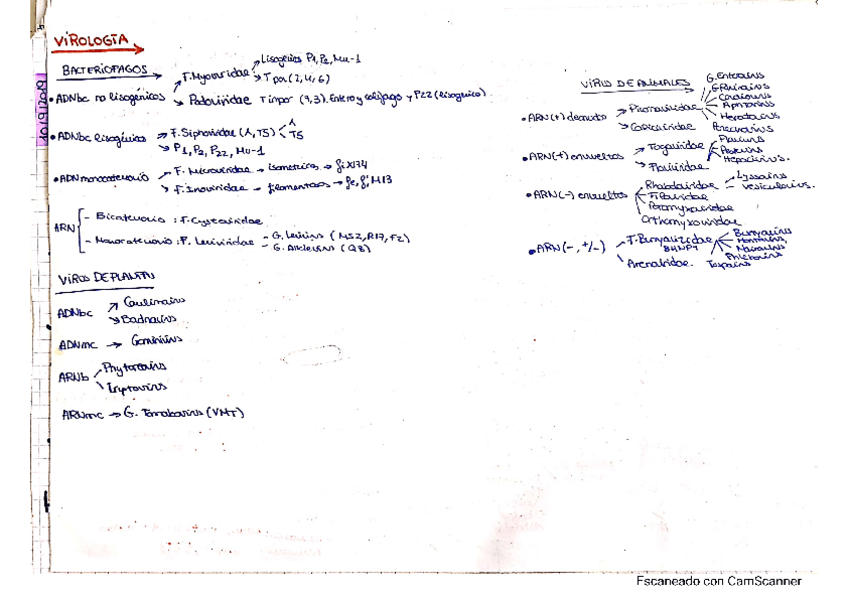 VIROLOGÍA
BACTERIOFAGOS
• ADNbc no lisogénicos
F. Myoviridae
Lisogénicos P1, P2, Mu-1
T par (2, 4, 6)
Podoviridae T impar (7,3). Enterococifago y P22 (lisogénico)
• ADNbc lisogénicos
F. Siphoviridae (λ, T5)
λ
T5
P1, P2, P22, Mu-1
• ADN monocatenario
F. Microviridae → isométricos → fiX174
F. Inoviridae → filamentosos →
M13
ARN
- Bicatenario: F. Cystoviridae
- Monocatenario: F. Leviviridae
- G. Levivirus (MS2, R17, F2)
- G. Allolevirus (QB)
VIRUS DE PLANTAS
ADNbc
Caulimovirus
Badnavirus
ADNmc → Geminivirus
ARNb
Phytoreovirus
ARNmc → G. Tobamovirus (VMT)
VIRUS DE ANIMALES
• ARN(+) desnudo
Picornaviridae
G. Enterovirus
G. Rhinovirus
Cardiovirus
Aphtovirus
Hepatovirus
Parechovirus
Caliciviridae
• ARN(+) envueltos
Togaviridae
Flaviviridae
Flavivirus
Pestivirus
Hepacivirus.
• ARN(-) envueltos
Rhabdoviridae
Lyssavirus
Vesiculovirus.
Filoviridae
Paramyxoviridae
Orthomyxoviridae
• ARN(-, +/-)
F. Bunyaviridae
BHNPT
Bunyavirus
Hantavirus,
Nairovirus
Phlebovirus
Tospovirus
Arenaviridae.
10/9/2019
Escaneado con CamScanner